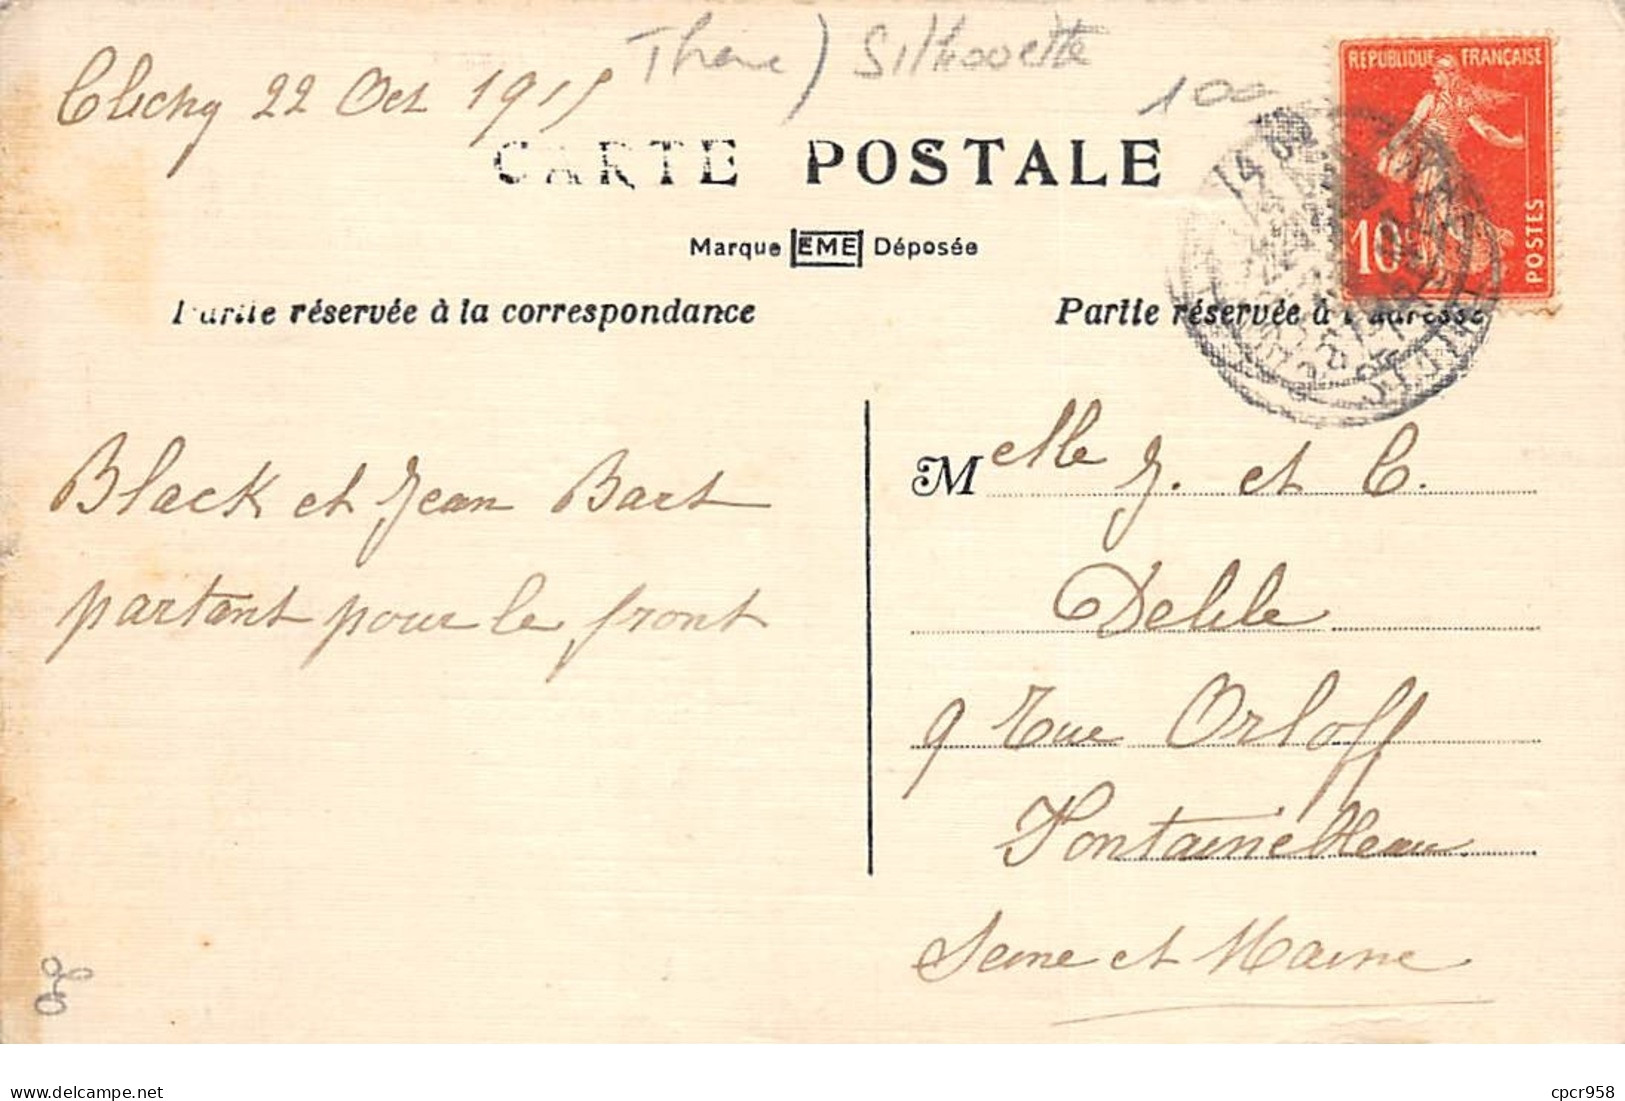 Clichy 22 Oct 1915
Thème) Silhouette
100
REPUBLIQUE FRANÇAISE
10c
POSTES
CARTE POSTALE
Marque EME Déposée
Partie réservée à la correspondance
Partie réservée à l'adresse
Black et Jean Bart
partant pour le front
Melle J. et C.
Delile
9 Rue Orloff
Fontainebleau
Seine et Marne
www.delcampe.net
cpcr958